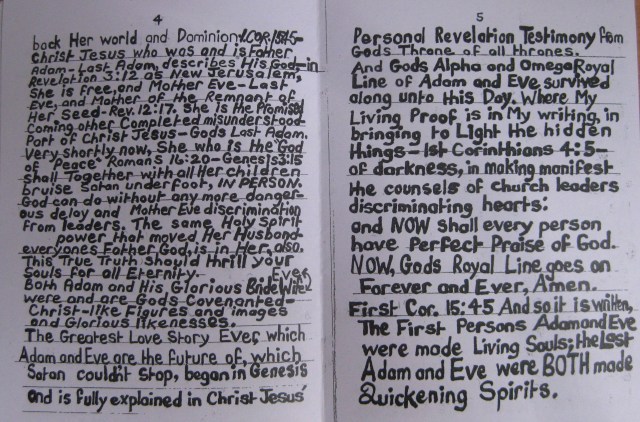 4
back Her world and Dominion. 1.Cor.15:45-
Christ Jesus who was and is Father
Adam-Last Adam, describes His God-in
Revelation 3:12 as New Jerusalem,
She is free, and Mother Eve-Last
Eve, and Mother of the Remnant of
Her Seed-Rev.12:17. She is the Promised
Coming other Completed misunderstood
Part of Christ Jesus-Gods Last Adam.
Very shortly now, She who is the God
of "Peace" Romans 16:20-Genesis 3:15
shall Together with all Her children
bruise Satan underfoot, IN PERSON.
God can do without any more danger-
ous delay and Mother Eve discrimination
from leaders. The same Holy Spirit
power that moved Her Husband-
everyones Father God, is in Her, also.
This True Truth should thrill your
Souls for all Eternity. Eve,
Both Adam and His Glorious Bride Wife
were and are Gods Covenanted-
Christ-like Figures and images
and Glorious likenesses.
The Greatest Love Story Ever, which
Adam and Eve are the future of, which
Satan couldn't stop, began in Genesis
and is fully explained in Christ Jesus'
5
Personal Revelation Testimony from
Gods Throne of all thrones.
And Gods Alpha and Omega Royal
Line of Adam and Eve survived
along unto this Day. Where My
Living Proof is in My writing, in
bringing to Light the hidden
things-1st Corinthians 4:5-
of darkness, in making manifest
the counsels of church leaders
discriminating hearts:
and NOW shall every person
have Perfect Praise of God.
NOW, Gods Royal Line goes on
Forever and Ever, Amen.
First Cor. 15:45 And so it is written,
The First Persons Adam and Eve
were made Living Souls; the Last
Adam and Eve were BOTH made
Quickening Spirits.